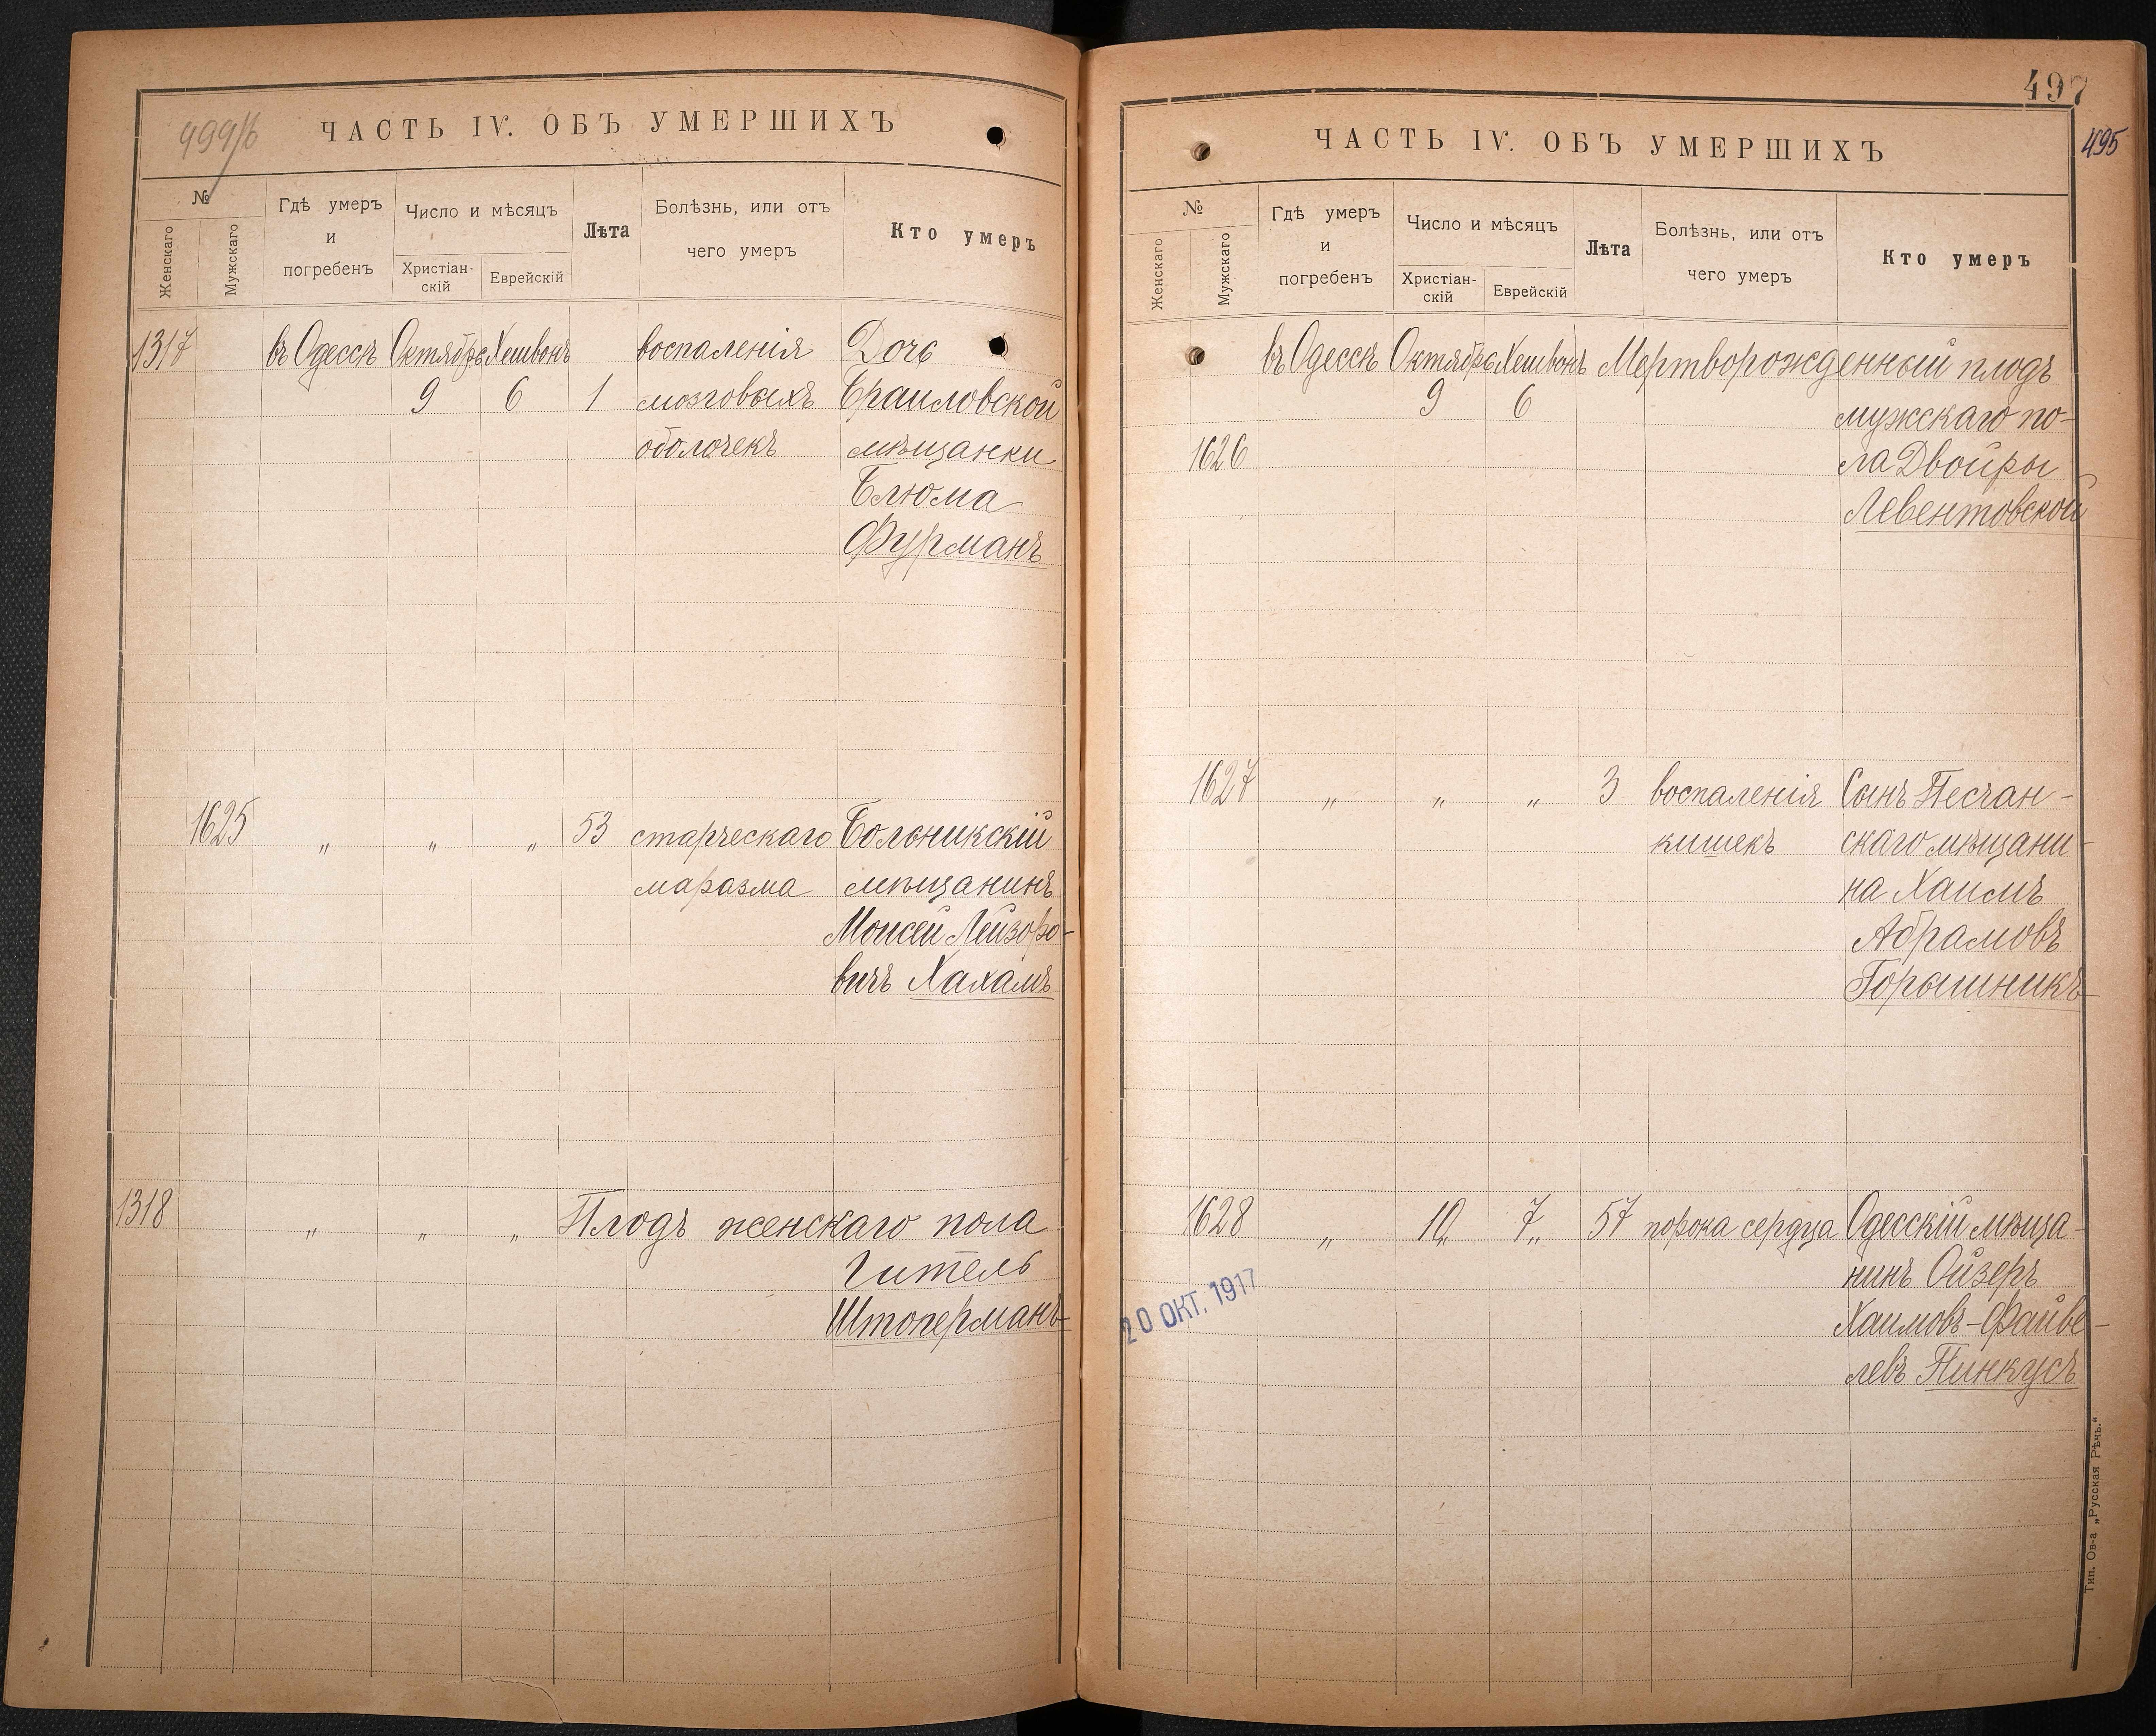 499/б
ЧАСТЬ IV. ОБЪ УМЕРШИХЪ
№
Женскаго
Мужскаго
Гдѣ умеръ
и
погребенъ
Число и мѣсяцъ
Христіан-
скій
Еврейскій
Лѣта
Болѣзнь, или отъ
чего умеръ
Кто умеръ
1317 въ Одессѣ Октябрь Хешвонъ воспаленія Дочь
9 6 1 мозговыхъ Браиловской
оболочекъ мѣщанки
Блюма
Фурманъ
1625 „ „ „ 53 старческаго Больникскій
маразма мѣщанинъ
Моисей Лейзоро-
вичъ Хахамъ
1318 „ „ „ Плодъ женскаго пола
Гитель
Штоперманъ
497
495
ЧАСТЬ IV. ОБЪ УМЕРШИХЪ
№
Женскаго
Мужскаго
Гдѣ умеръ
и
погребенъ
Число и мѣсяцъ
Христіан-
скій
Еврейскій
Лѣта
Болѣзнь, или отъ
чего умеръ
Кто умеръ
въ Одессѣ Октябрь Хешвонъ Мертворожденный плодъ
9 6 мужскаго по-
1626 ла Двойры
Левентовской
1627 „ „ „ 3 воспаленія Сынъ Песчан-
кишекъ скаго мѣщани-
на Хаимъ
Абрамовъ
Горышникъ
1628 „ 10„ 7„ 57 порока сердца Одесскій мѣща-
нинъ Ойзеръ
Хаимовъ-Файве-
левъ Пинкусъ
20 ОКТ. 1917
Тип. Ов-а „Русская Рѣчь.“